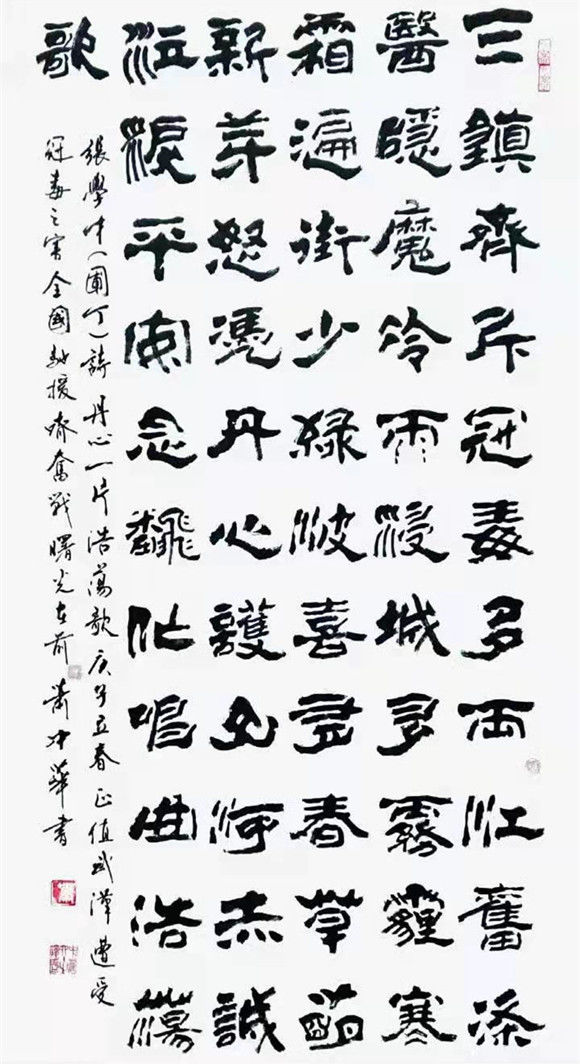 三鎮齊斥冠毒多兩江奮滌
醫隱魔冷雨浸城多霧霾寒
霜遍街少綠波喜尋春草萌
新芽怒凴丹心護山河赤誠
泣淚平安念飜作唱曲浩蕩
歌
張學中(圃丁)詩 丹心一片浩蕩歌 庚子立春 正值武漢遭受
冠毒之害全國馳援齊奮戰曙光在前 蕭中華書